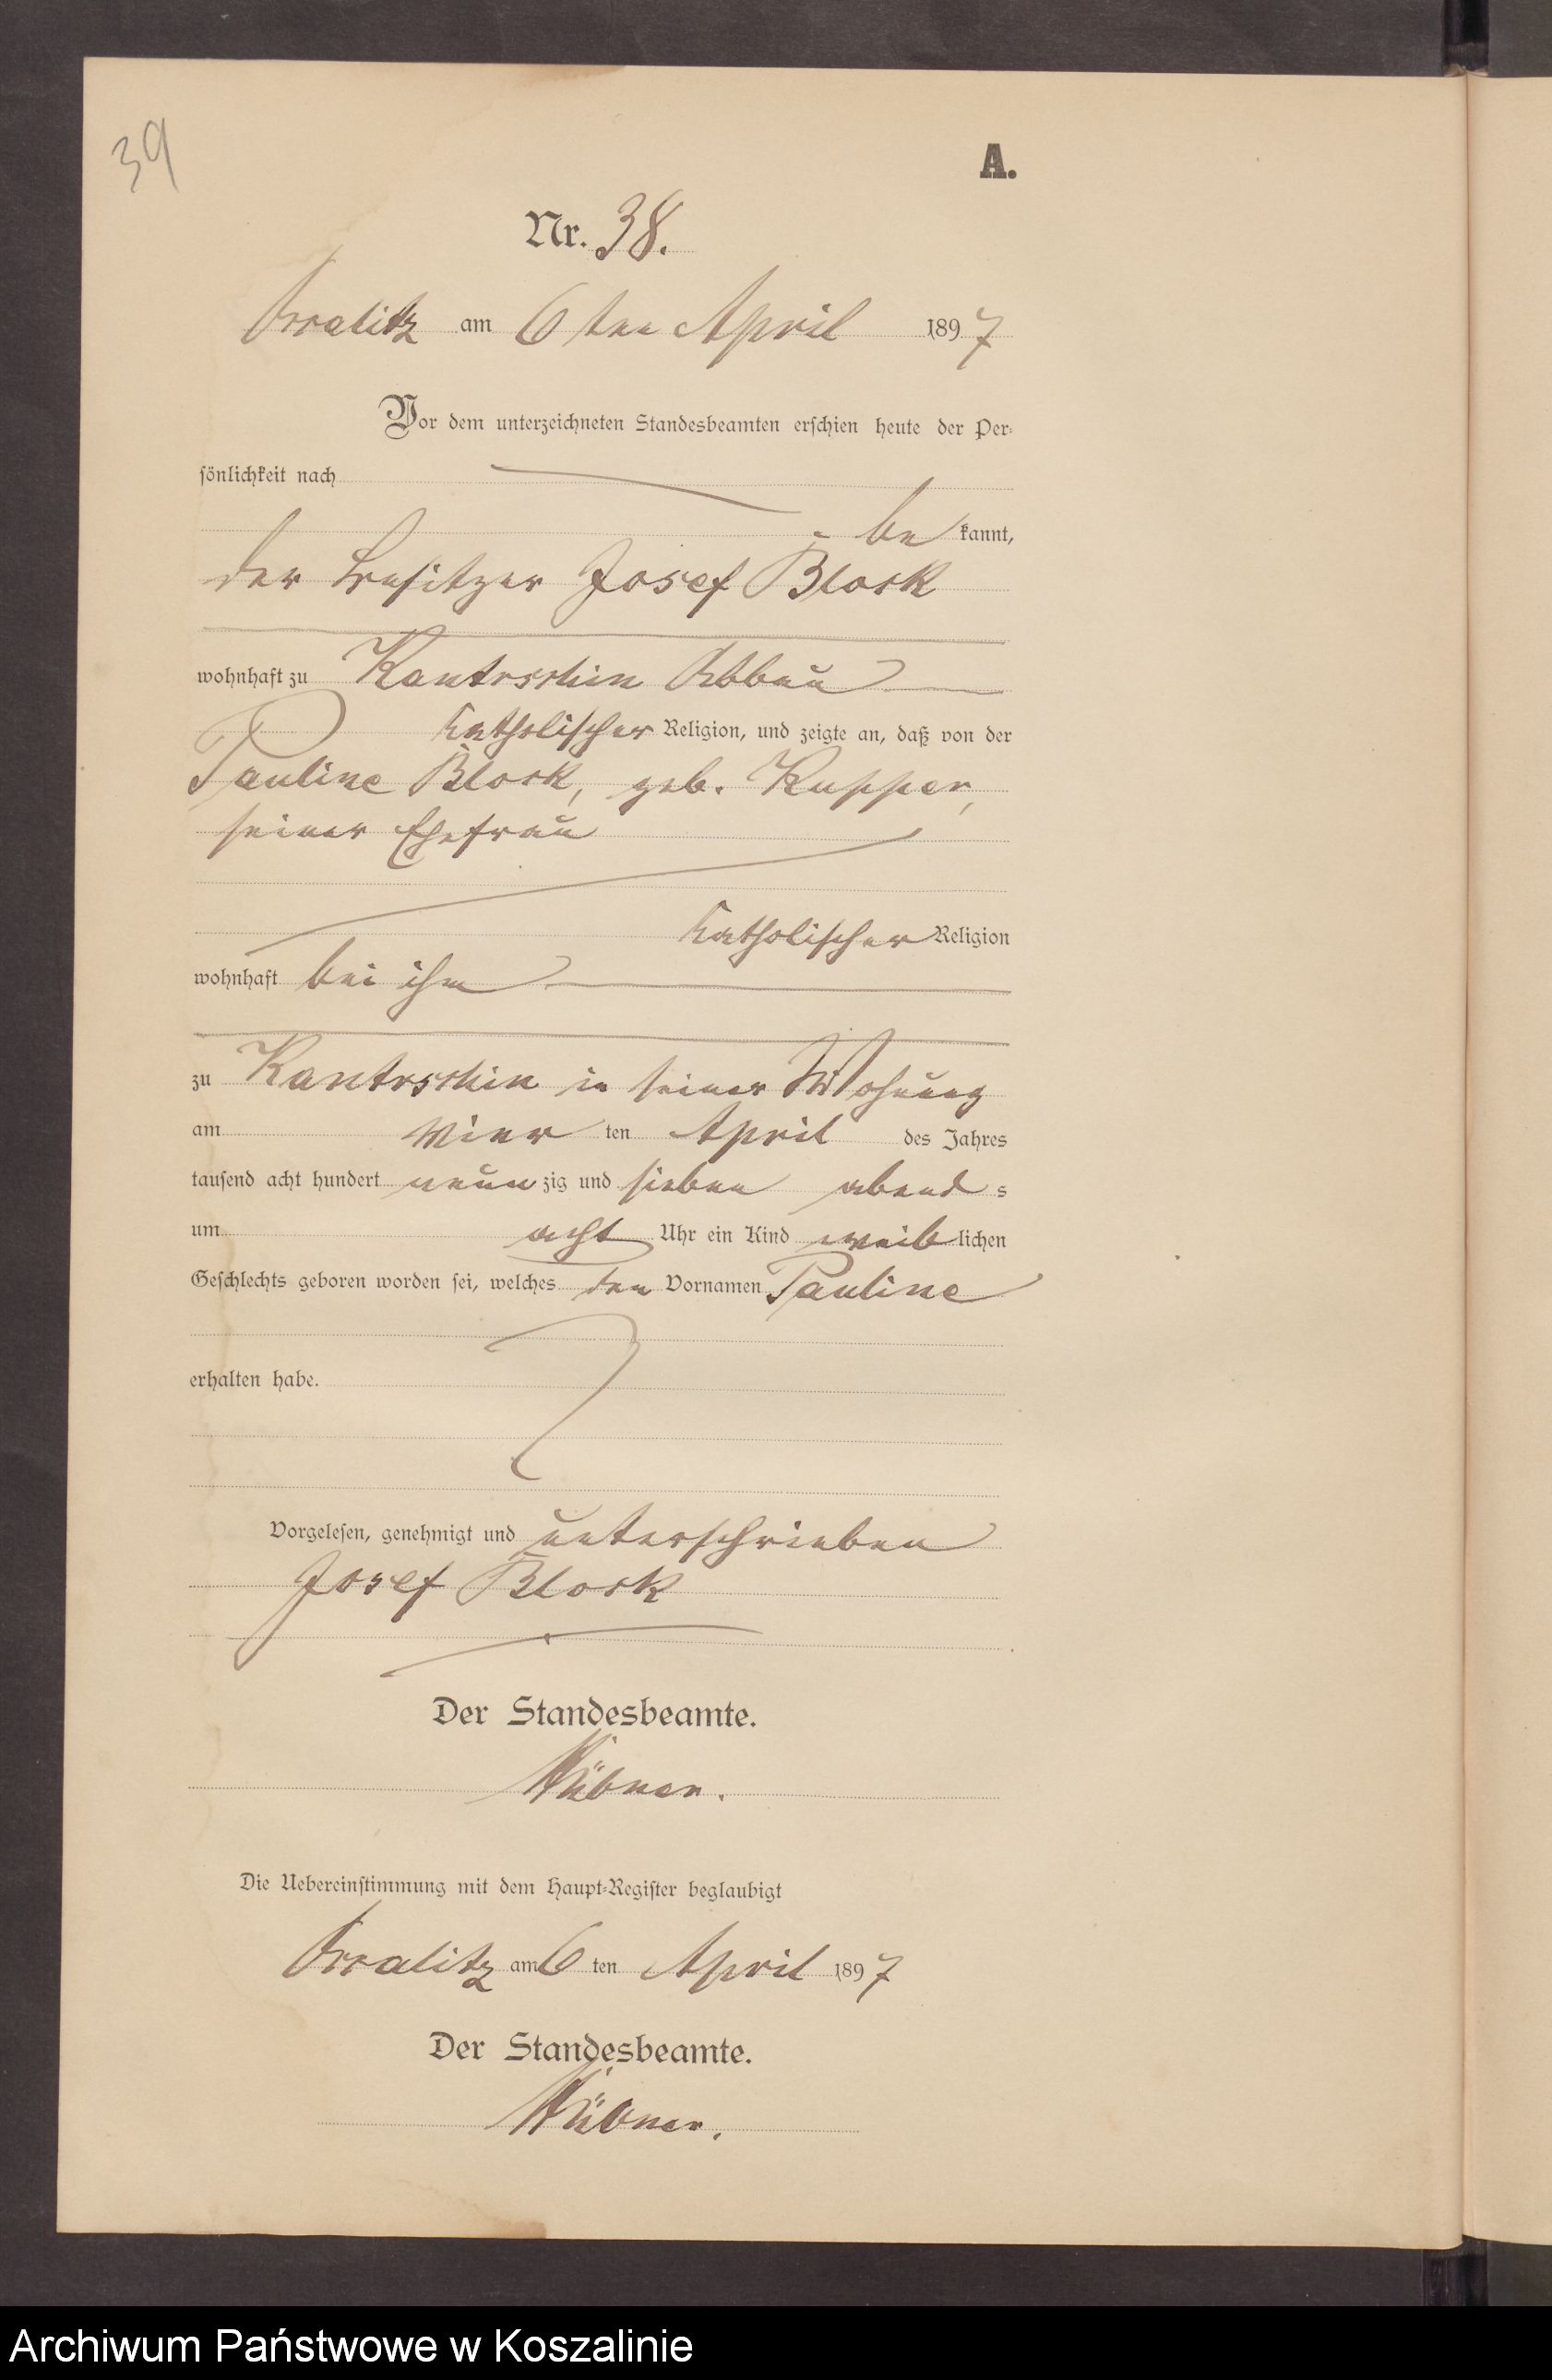 39
A.
Nr. 38.
am 6ten April 1897
Vor dem unterzeichneten Standesbeamten erschien heute der Per-
sönlichkeit nach
be kannt,
der Besitzer Josef Block
wohnhaft zu Kantrschin Abbau
katholischer Religion, und zeigte an, daß von der
Pauline Block, geb. Kupper,
seiner Ehefrau
katholischer Religion
wohnhaft bei ihm
zu Kantrschin in seiner Wohnung
am vier ten April des Jahres
tausend acht hundert neun zig und sieben abend s
um acht Uhr ein Kind weib lichen
Geschlechts geboren worden sei, welches den Vornamen Pauline
erhalten habe.
Vorgelesen, genehmigt und unterschrieben
Josef Block
Der Standesbeamte.
Hübner.
Die Uebereinstimmung mit dem Haupt-Register beglaubigt
am 6 ten April 1897
Der Standesbeamte.
Hübner.
Archiwum Państwowe w Koszalinie